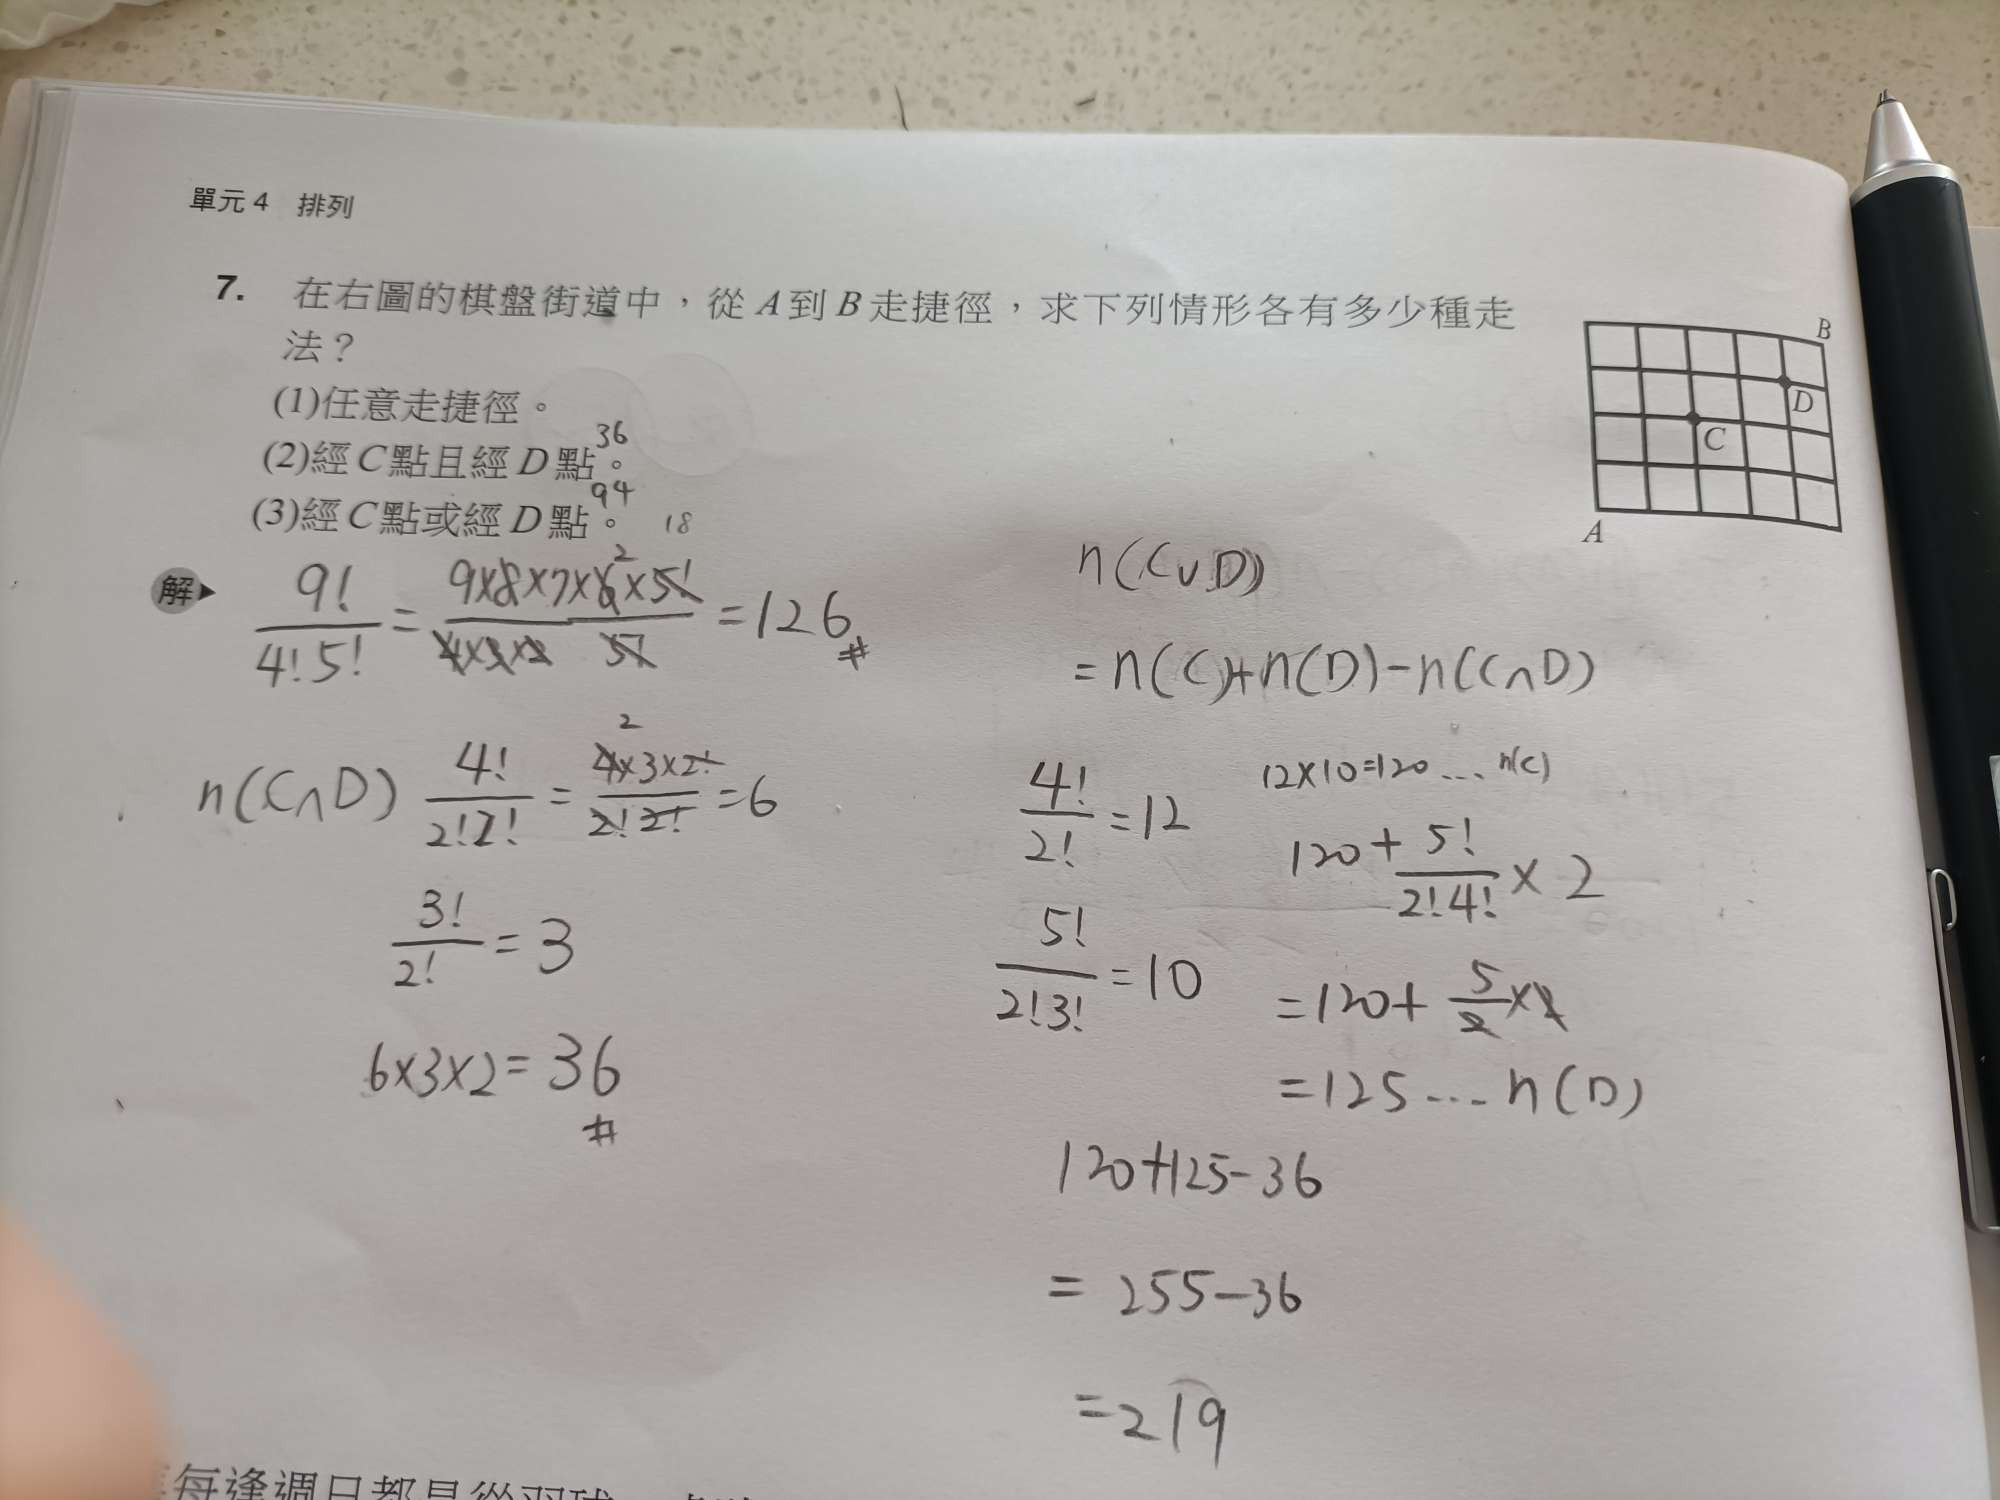 單元 4 排列
7. 在右圖的棋盤街道中，從 A 到 B 走捷徑，求下列情形各有多少種走
法？
(1)任意走捷徑。
(2)經 C 點且經 D 點。 36
(3)經 C 點或經 D 點。 94 18
B
D
C
A
解
9!/4!5! = 9×8×7×6×5!/4×3×2 5! = 126 #
2
n(C∩D) 4!/2!2! = 4×3×2!/2!2! = 6
2
3!/2! = 3
6×3×2 = 36
#
n(C∪D)
= n(C)+n(D)-n(C∩D)
4!/2! = 12
5!/2!3! = 10
12×10=120 ... n(C)
120 + 5!/2!4! × 2
= 120 + 5/2 × 2
= 125 ... n(D)
120+125-36
= 255-36
= 219
每逢週日都是從羽球